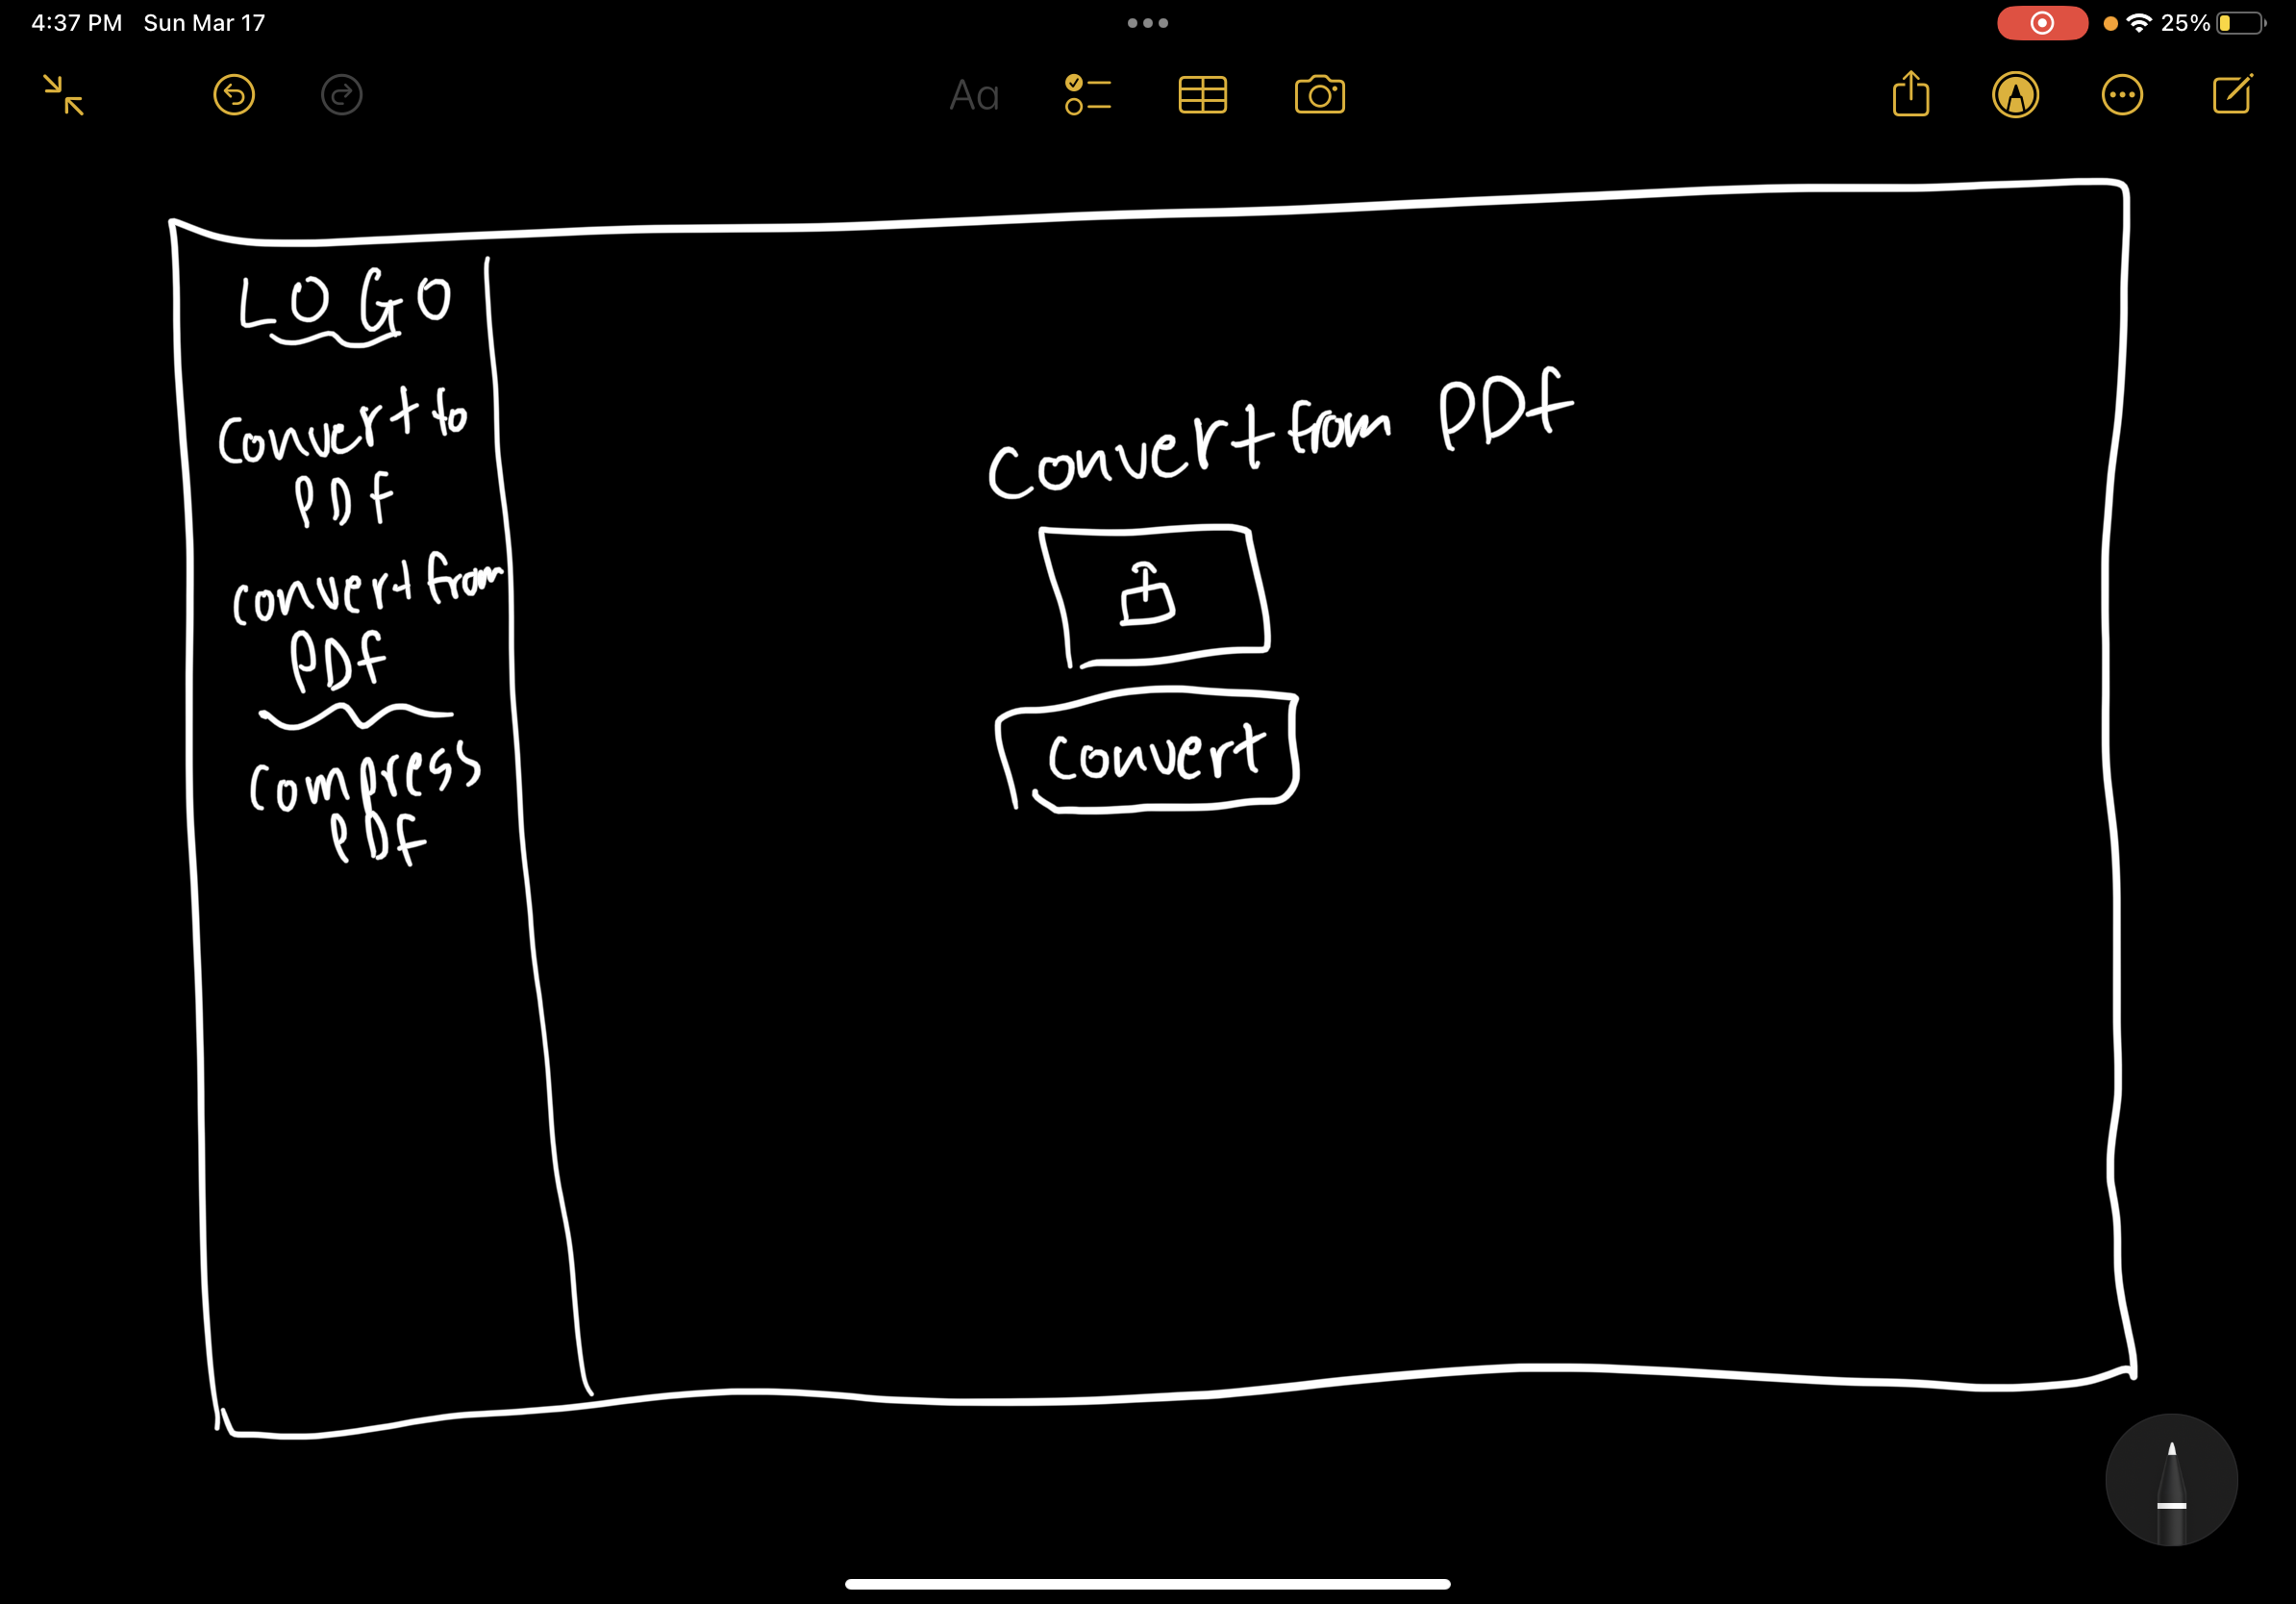 4:37 PM Sun Mar 17
25%
Aa
LOGO
Convert to
PDf
Convert from
PDf
Compress
PDf
Convert from PDf
Convert